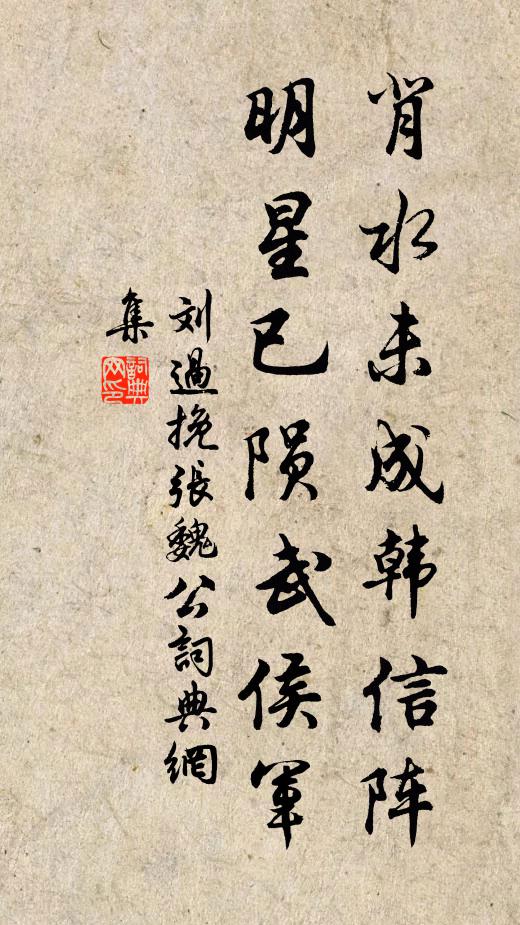 背水未成韩信阵
明星已陨武侯军
刘過挽張魏公詞典網
集
詞典
网印